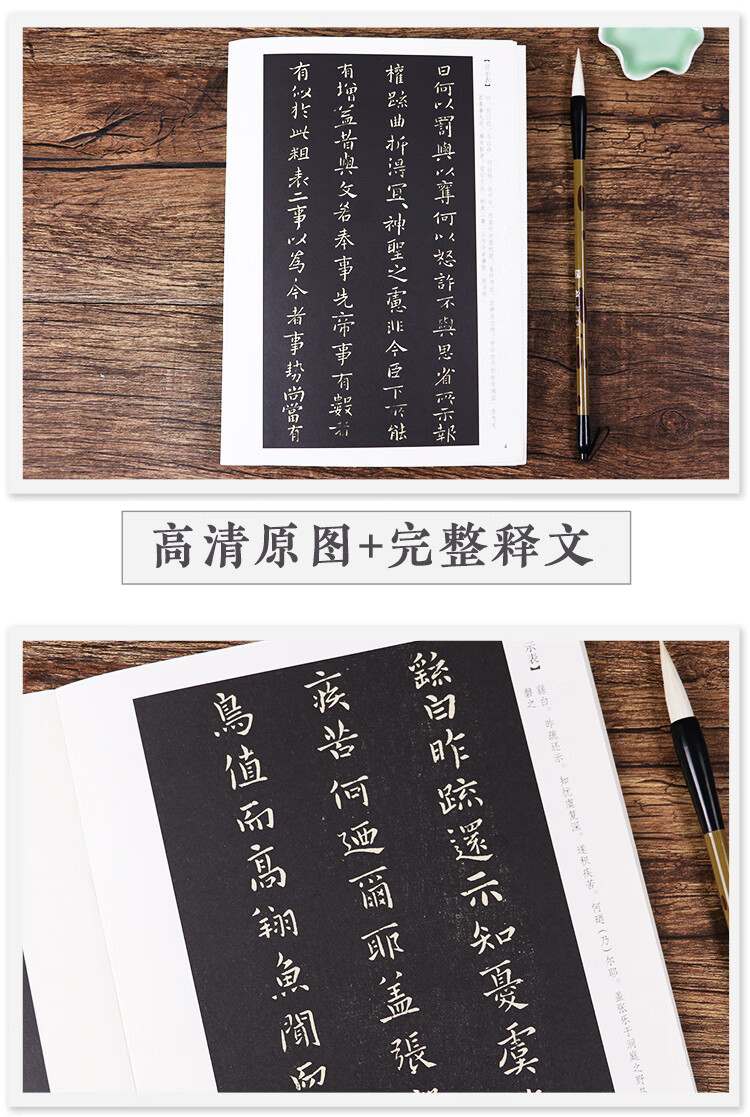 【宣示表】
曰何以罰與以奪何以怒許不與思省所示報
權疏曲折得宜、神聖之慮非今臣下所能
有增益昔與文若奉事先帝事有數者
有似於此粗表二事以為今者事勢尚當有
4
高清原图+完整释文
示表】
繇白。昨疏还示。知忧虞复深。遂积疾苦。何迺(乃)尔耶。盖张乐于洞庭之野
磬之
繇白昨疏還示知憂虞
疾苦何迺爾耶蓋張
鳥值而高翔魚聞而